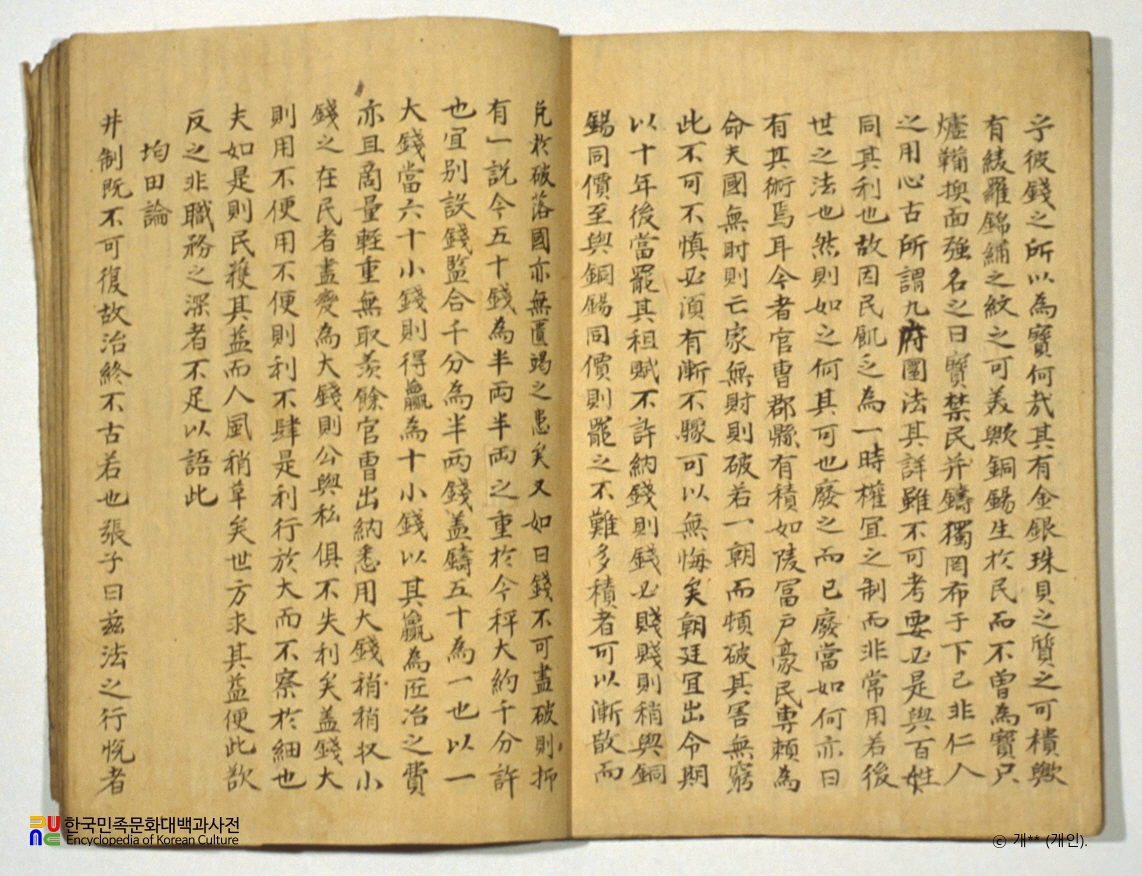 乎彼錢之所以為寶何哉其有金銀珠貝之質之可積歟
有綾羅錦繡之紋之可美歟銅錫生於民而不曾為寶只
爐鞴換面強名之曰寶禁民幷鑄獨罔布于下已非仁人
之用心古所謂九府圜法其詳雖不可考要必是與百姓
同其利也故因民飢之為一時權宜之制而非常用若後
世之法也然則如之何其可也廢之而已廢當如何亦曰
有其術焉耳今者官曹郡縣有積如陵富戶豪民專賴為
命夫國無財則亡家無財則破若一朝而頓破其害無窮
此不可不慎必須有漸不驟可以無悔矣朝廷宜出令期
以十年後當罷其租賦不許納錢則錢必賤賤則稍與銅
錫同價至與銅錫同價則罷之不難多積者可以漸散而
免於破落國亦無匱竭之患矣又如曰錢不可盡破則抑
有一說今五十錢為半兩半兩之重於今秤大約千分許
也宜別設錢監合千分為半兩錢盖鑄五十為一也以一
大錢當六十小錢則得贏為十小錢以其贏為匠冶之費
亦且商量輕重無取羨餘官曹出納悉用大錢稍稍收小
錢之在民者盡變為大錢則公與私俱不失利矣盖錢大
則用不便用不便則利不肆是利行於大而不察於細也
夫如是則民獲其益而人風稍革矣世方求其益便此歆
反之非職務之深者不足以語此
均田論
井制旣不可復故治終不古若也張子曰茲法之行悅者
한국민족문화대백과사전
Encyclopedia of Korean Culture
ⓒ 개** (개인).